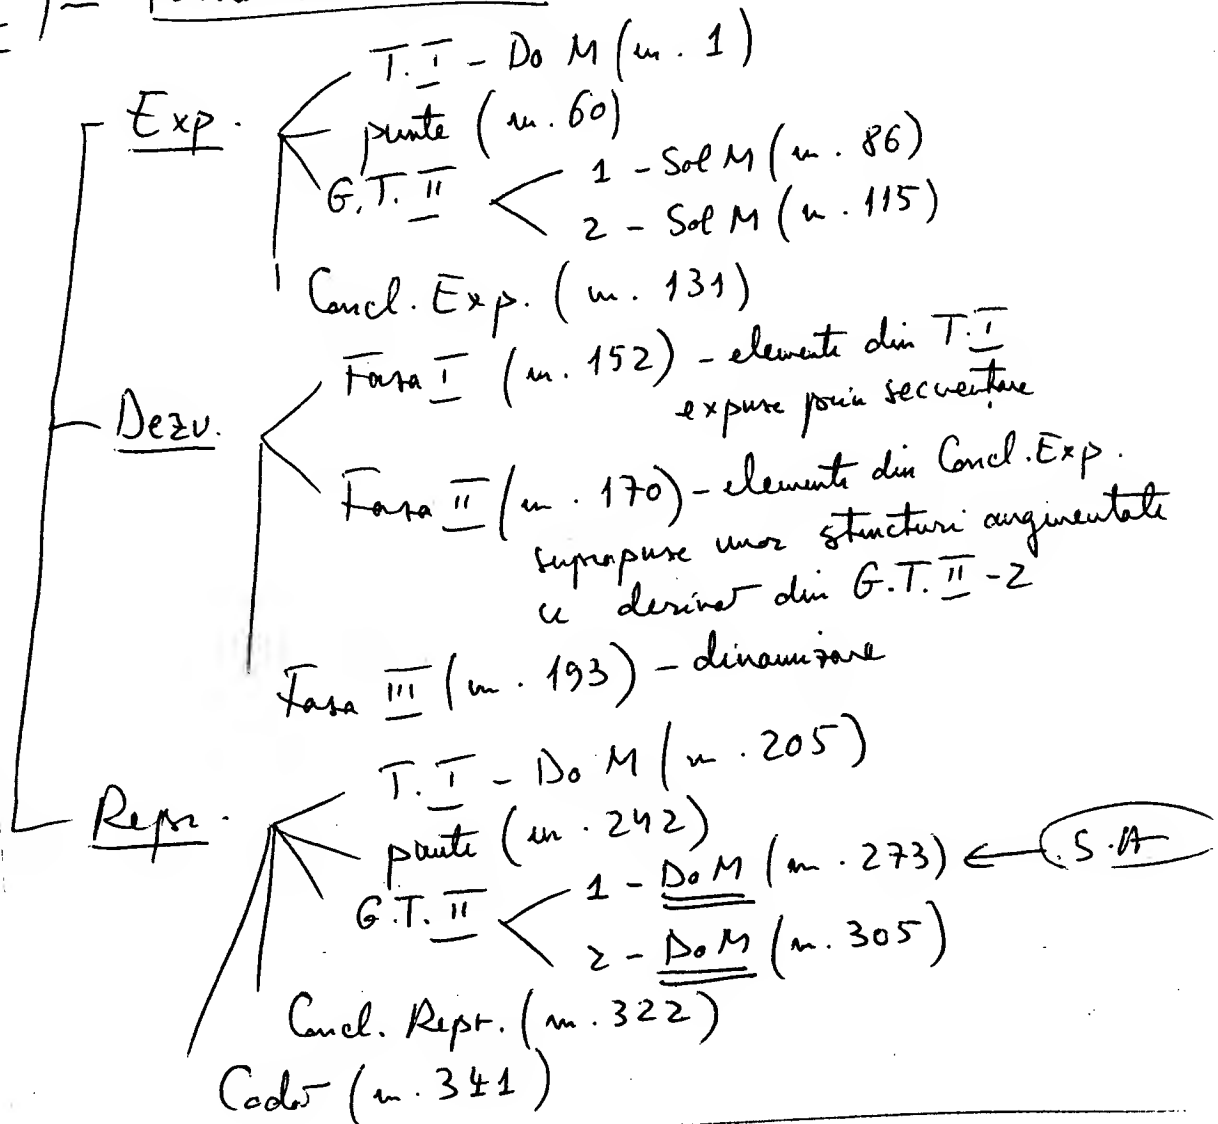 T. I - Do M (m. 1)
Exp.
punte (m. 60)
G.T. II
1 - Sol M (m. 86)
2 - Sol M (m. 115)
Concl. Exp. (m. 131)
Dezv.
Faza I (m. 152) - elemente din T. I
expuse prin secvențare
Faza II (m. 170) - elemente din Concl. Exp.
suprapuse unor structuri augmentate
derivat din G.T. II - 2
Faza III (m. 193) - dinamizare
Repr.
T. I - Do M (m. 205)
punte (m. 242)
G.T. II
1 - Do M (m. 273) ← S.A
2 - Do M (m. 305)
Concl. Repr. (m. 322)
Coda (m. 341)